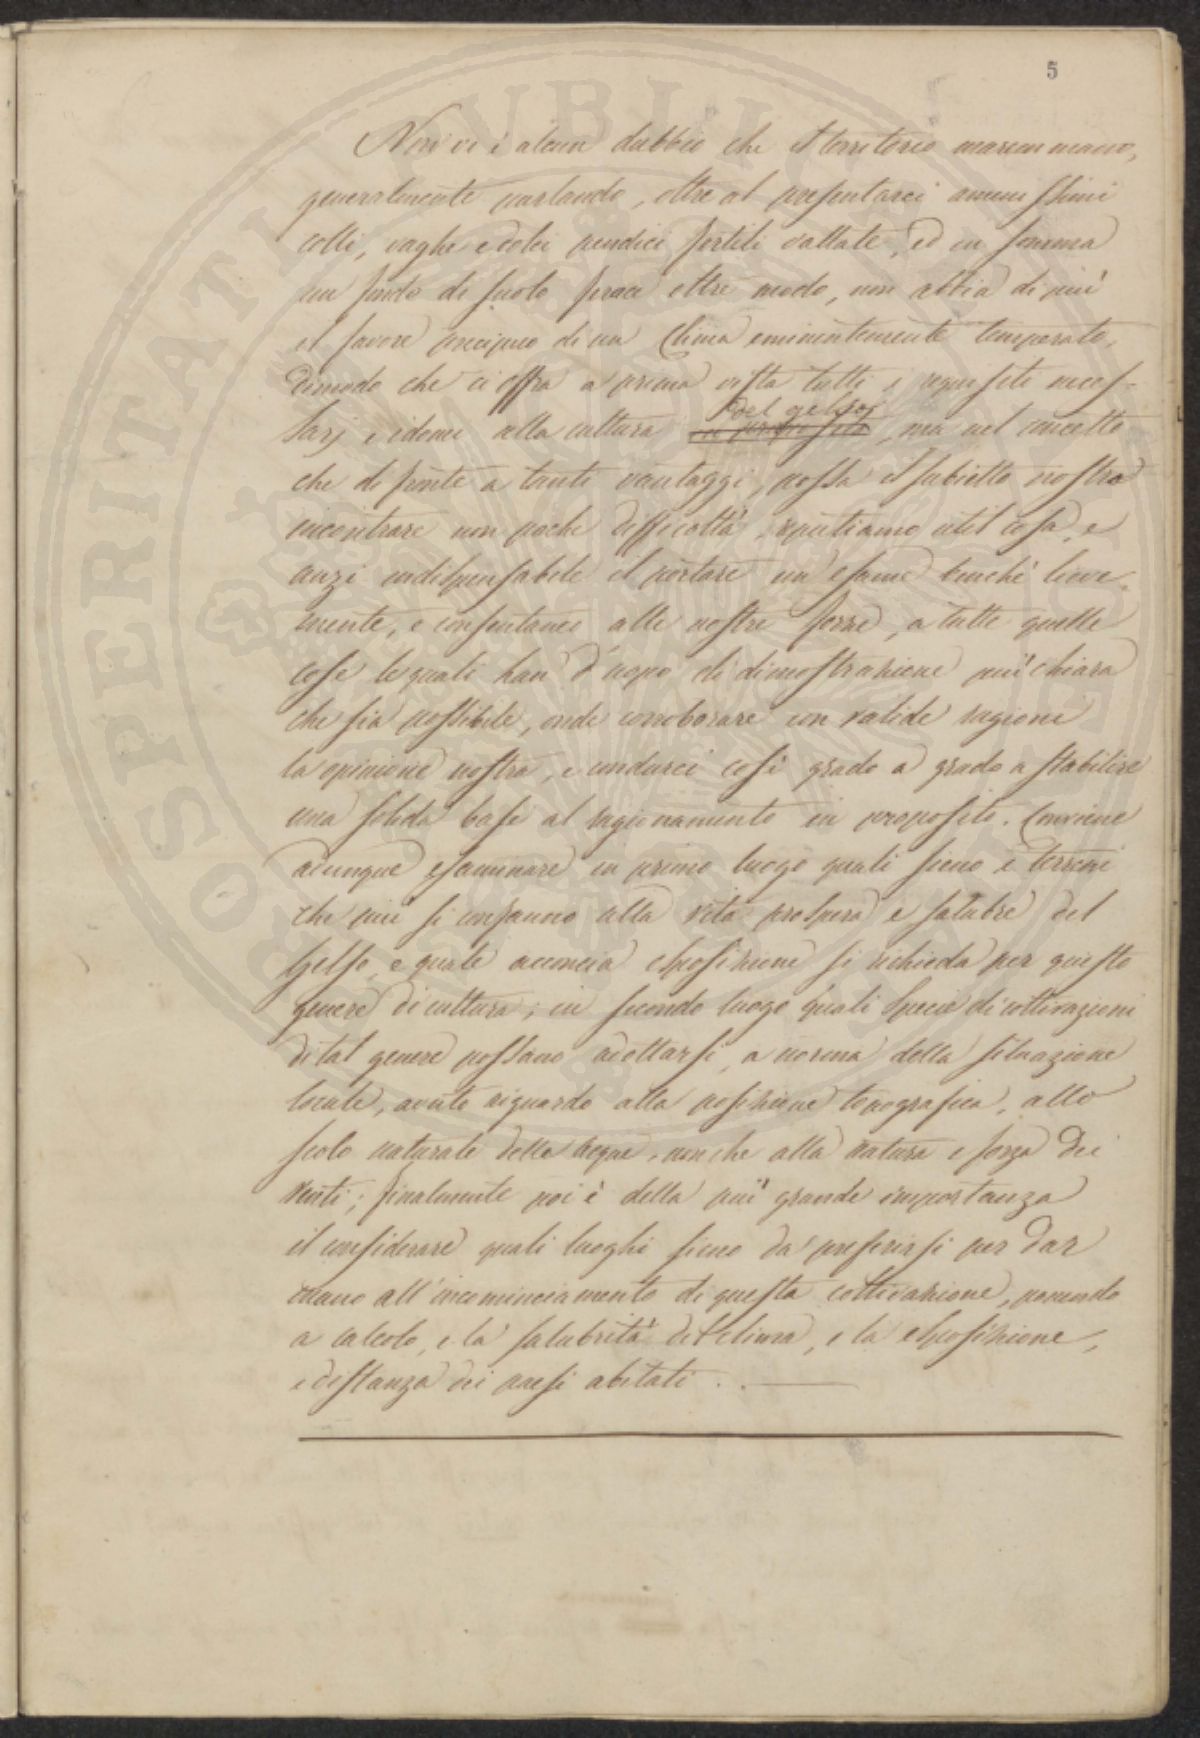 5
Non vi è alcun dubbio che il territorio maremmano,
generalmente parlando, oltre al presentarci amenissimi
colli, vaghe e dolci pendici fertili vallate, ed in somma
un fondo di suolo ferace oltre modo, non abbia di più
il favore precipuo di un Clima eminentemente temperato,
dimodo che ci offra a prima vista tutti i requisiti neces-
sarj e idonei alla cultura del gelso
in proposito, ma nel concetto
che di fronte a tanti vantaggi, possa il subietto nostro
incontrare non poche difficoltà, reputiamo util cosa, e
anzi indispensabile il portare un'esame benchè lieve-
mente, e consentaneo alle nostre forze, a tutte quelle
cose le quali han' d'uopo di dimostrazione più chiara
che sia possibile, onde corroborare con valide ragioni
la opinione nostra, e condurci così grado a grado a stabilire
una solida base al ragionamento in proposito. Conviene
adunque esaminare in primo luogo quali sieno i terreni
che più si confanno alla vita prospera e salubre del
Gelso, e quale acconcia esposizione si richieda per questo
genere di cultura; in secondo luogo quali specie di coltivazioni
di tal genere possano adottarsi, a norma della situazione
locale, avuto riguardo alla posizione topografica, allo
scolo naturale delle acque, non che alla natura e forza dei
venti; finalmente poi è della più grande importanza
il considerare quali luoghi sieno da preferirsi per dar
mano all'incominciamento di questa coltivazione, ponendo
a calcolo, e la salubrità del clima, e la esposizione,
e distanza dei paesi abitati . .
PROSPERITATI PUBLICAE